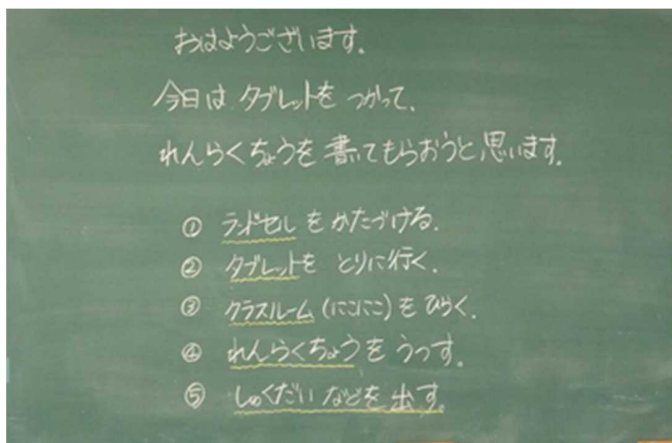 おはようございます。
今日は タブレットを つかって、
れんらくちょうを 書いてもらおうと思います。
① ランドセルを かたづける。
② タブレットを とりに行く。
③ クラスルーム(にこにこ)を ひらく。
④ れんらくちょうを うつす。
⑤ しゅくだいなどを 出す。